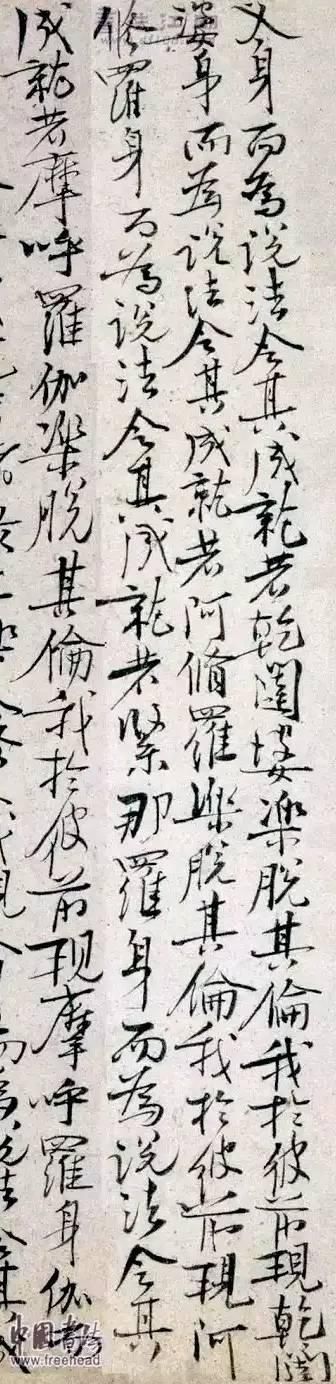 叉身而為說法令其成就若乾闥婆樂脫其倫我於彼前現乾闥
婆身而為說法令其成就若阿脩羅樂脫其倫我於彼前現阿
脩羅身而為說法令其成就若緊那羅身而為說法令其
成就若摩呼羅伽樂脫其倫我於彼前現摩呼羅身伽
中国
www.freehead